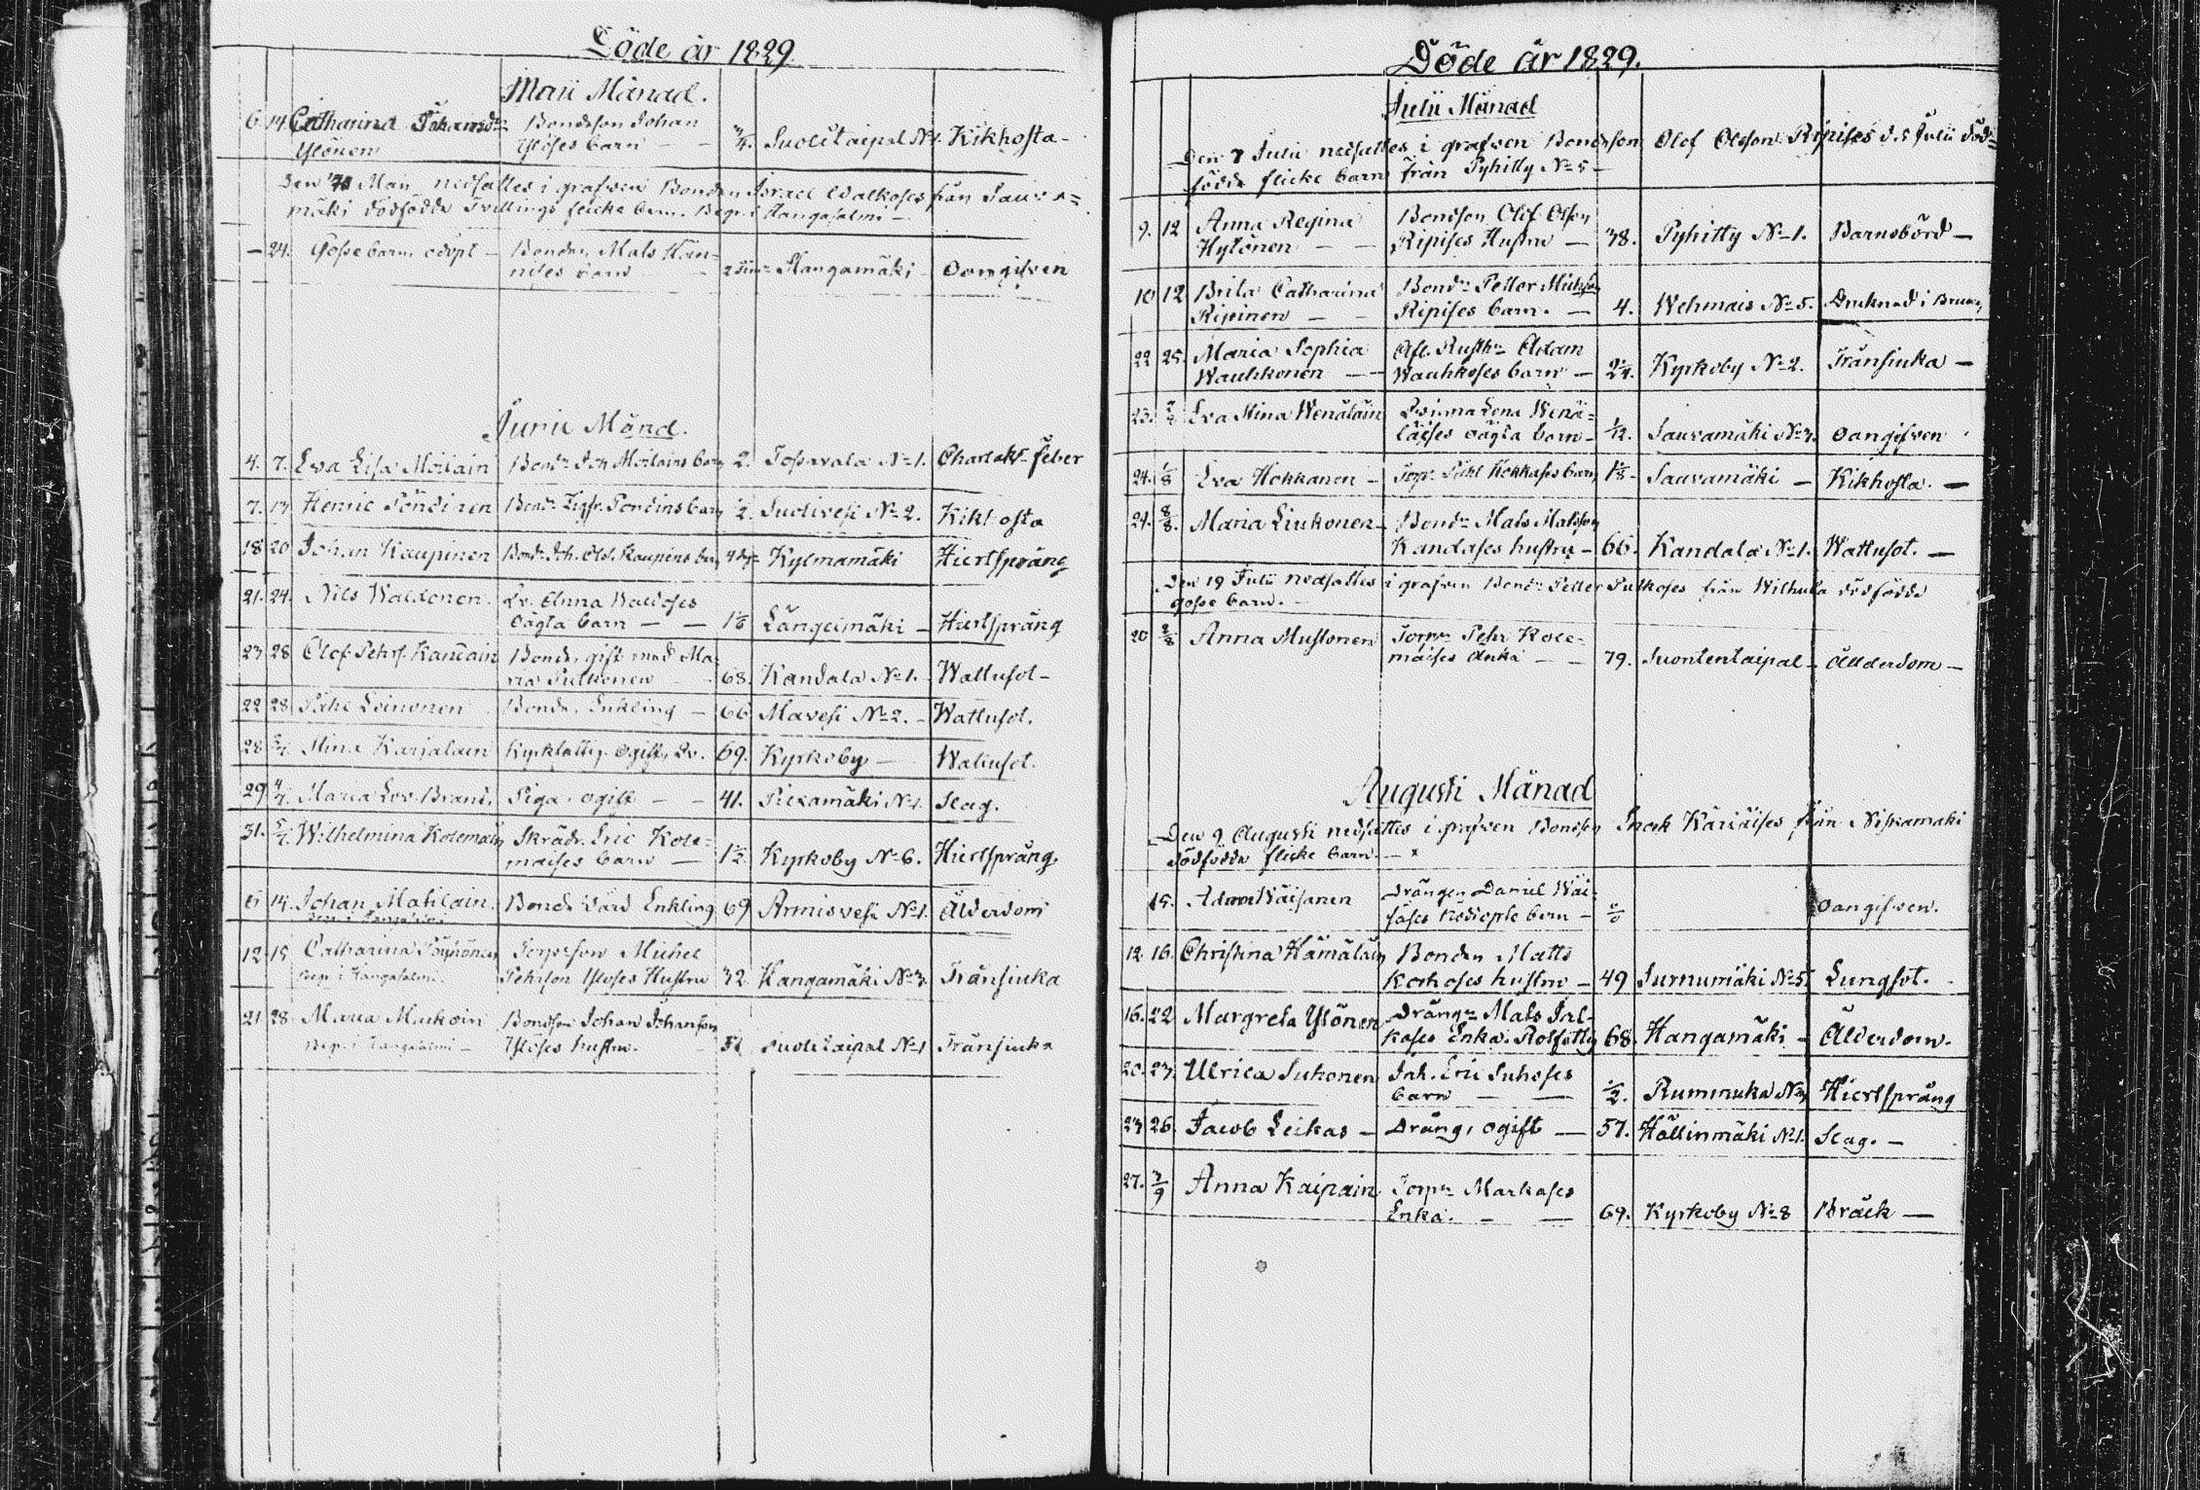 Döde år 1829.
Maii Månad.
6. 14. Catharina Johansdr Bondeson Johan
Ylönen Ylöses barn — — 3/4. Suolitaipal No 1. Kikhosta —
Den Maii nedsattes i grafven Bonden Israel Walkoses från Sauva=
mäki dödfödde Tvillings flicke barn. Begr. i Hangasalmi —
— 24. Gosse barn, odöpt — Bonden Mats Hän-
nises barn — Hangamäki — Oangifven
Junii Månd.
4. 7. Ewa Lisa Moilain Bondn Joh Moilains barn 2. Topavala No 1. Charlak. Feber
7. 13 Henric Pöndinen Bondn Pöndins barn 1/2. Suolivesi No 2. Kikhosta
18 20 Johan Kaupinen Bondn Joh. Olofs. Kaupins barn Kylmamäki Hiertspräng
21. 24. Nils Waldonen. Qv. Anna Waldoses
oägta barn — — 1 1/6 Längelmäki — Hiertspräng
23 28 Olof Pehrs. Kandain Bonde, gift med Ma-
ria Pulkonen 68. Kandala No 1. Wattusot —
22 28 Påhl Loinonen Bonde, Enkling — 66 Mavesi No 2. — Wattusot.
28 Stina Karjalain Kyrkfattig. Ogift, Qv. 69. Kyrkoby — Wattusot.
29 4/7. Maria Lov. Brand. Piga. ogift — — 41. Piexamäki No 1. Slag.
31. 5/7. Wilhelmina Kolemain Skrädn. Eric Kole=
maises barn — 1 1/2. Kyrkoby No 6. Hiertspräng.
14. Johan Matilain. Bonde vård Enkling 69 Armisvesi No 1. Ålderdom
12. 15 Catharina Pöyhönen Torpeson Michel
Begr. i Hangasalmi. Pehrson Yloses Hustru 32 Hangamäki No 3. Tränsiuka
21. 28. Maria Markoin Bondeson Johan Johanson
Begr. i Hangasalmi — Ylöses hustru. Suolitaipal No 1 Tränsiuka
Döde år 1829.
Julii Månad
Den 7 Julii nedsattes i grafven Bondeson Olof Olofson Ripises d. 5 Julii död=
födde flicke barn från Pyhitty No 5 —
9. 12 Anna Regina Bondson Olof Olson
Hytönen — — Ripises Hustru — 38. Pyhitty No 1. Barnsbörd —
10 12 Brita Catharina Bondn Petter Michels
Ripinen — — Ripises barn. — 4. Wehmais No 5. Druknad i Brunn
22 25. Maria Sophia Afl. Rusth. Adam
Wauhkonen — — Wauhkoses barn — 2/4. Kyrkoby No 2. Tränsiuka —
23. Eva Stina Wenäläin Qvinna Lena Wenä=
läises oägta barn — 1/12. Sauvamäki No 3. oangifven
24. 1/8 Eva Hokkanen — Torpr. Påhl Hokkases barn 1 1/8. Sauvamäki — Kikhosta. —
24. 8/8. Maria Liukonen — Bondn Mats Matsson
Kandases hustru — 66. Kandala No 1. Wattusot. —
Den 19 Julii nedsattes i grafven Bondn Petter Pulkoses från Wilhula dödfödde
gosse barn. —
20 2/8 Anna Mustonen Torpr Pehr Kole-
maises Enka — — 79. Suontentaipal — Ålderdom —
Augusti Månad
Den 9. Augusti nedsattes i grafven Bondson Enock Käriäises från Niskamäki
dödfödde flicke barn. — ×
15. Adam Väisänen Drängen Daniel Wäi-
säses barn — Oangifven.
12. 16. Christina Hämäläin Bonden Matts
Korhoses hustru — 49 Surnumäki No 5 Lungsot.
16. 22 Margreta Ylönen Drängn Mats Jal-
koses Enka. Rotfattig 68. Hangamäki — Ålderdom.
20. 23. Ulrica Suhonen Inh. Eric Suhoses
barn — — 1/2. Rummuka No 3, Hiertspräng
23 26. Jacob Leikas — Dräng, ogift — 57. Hällinmäki No 1. Slag. —
27. 3/9 Anna Kaipain Torpr Markases
Enka. — — 69. Kyrkoby No 8 Bräck —